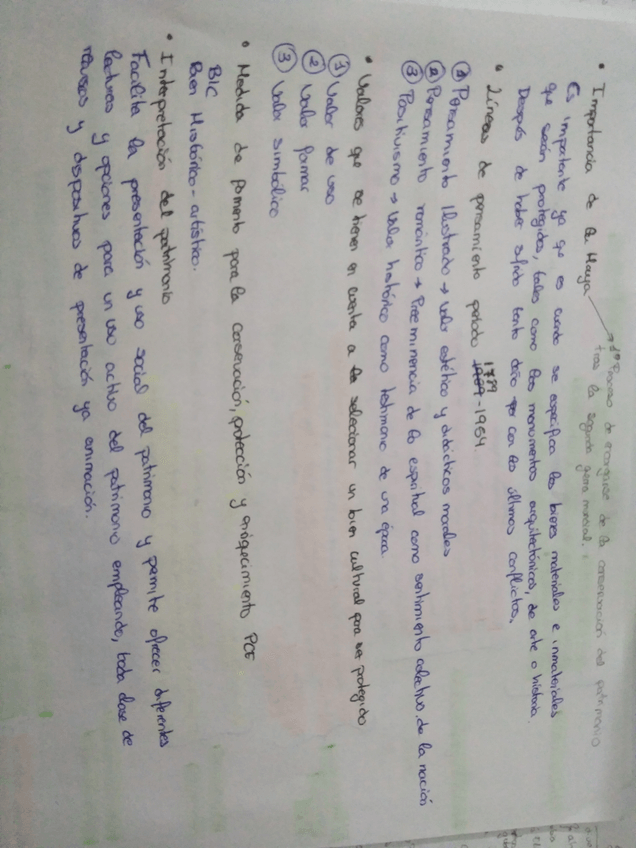 • Importancia de la Haya → 1º Proceso de de la conservación del patrimonio
tras la segunda guerra mundial.
Es importante ya qe es cuando se especifica los bienes materiales e inmateriales
qe serán protegidos, tales como los monumentos arquitectónicos, de arte o historia.
Después de haber sufrido tanto daño con los últimos conflictos.
• Líneas de pensamiento periodo 1789 - 1964.
① Pensamiento Ilustrado → valor estético y didácticos morales
② Pensamiento romántico → Preeminencia de lo espiritual como sentimiento colectivo de la nación
③ Positivismo → valor histórico como testimonio de una época.
• Valores que se tienen en cuenta a la seleccionar un bien cultural para ser protegido
① Valor de uso
② Valor formar
③ Valor simbólico
• Medida de fomento para la conservación, protección y enriquecimiento PCE
BIC
Bien Histórico-artístico.
• Interpretación del patrimonio
Facilita la presentación y uso social del patrimonio y permite ofrecer diferentes
lecturas y opciones para un uso activo del patrimonio empleando, toda clase de
recursos y dispositivos de presentación ya animación.